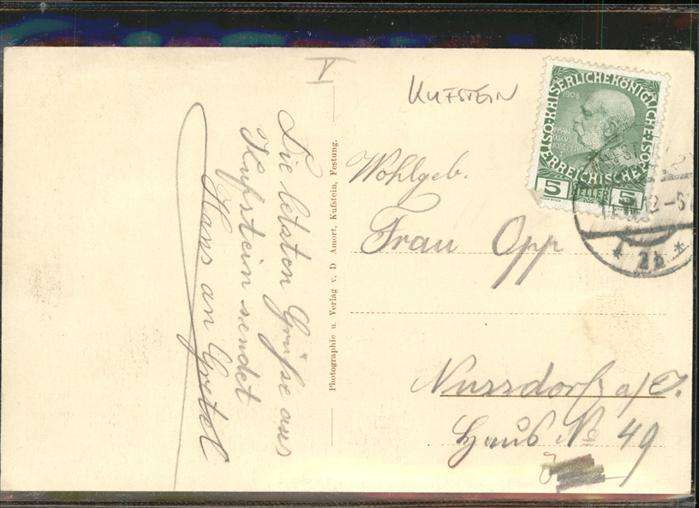 V
KUFSTEIN
Die letzten Grüße aus
Kufstein sendet
Hans an Gretel
Photographie u. Verlag v. D Amort, Kufstein, Festung.
KAISERLICHE KÖNIGLICHE ÖSTERREICHISCHE
1908
5 HELLER 5
12-6
* 2b *
Wohlgeb.
Frau Opp
Nussdorf a/I.
Haus No 49